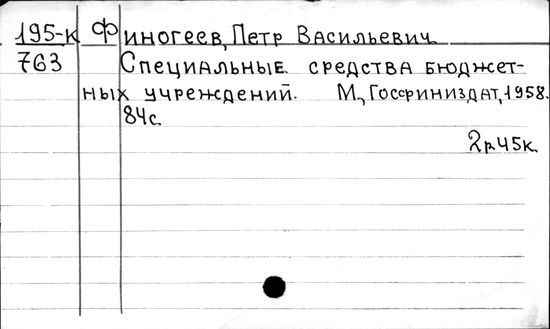 195-к Финогеев, Петр Васильевич
763 Специальные средства бюджет-
ных учреждений. М., Госфиниздат, 1958.
84с.
2р.45к.